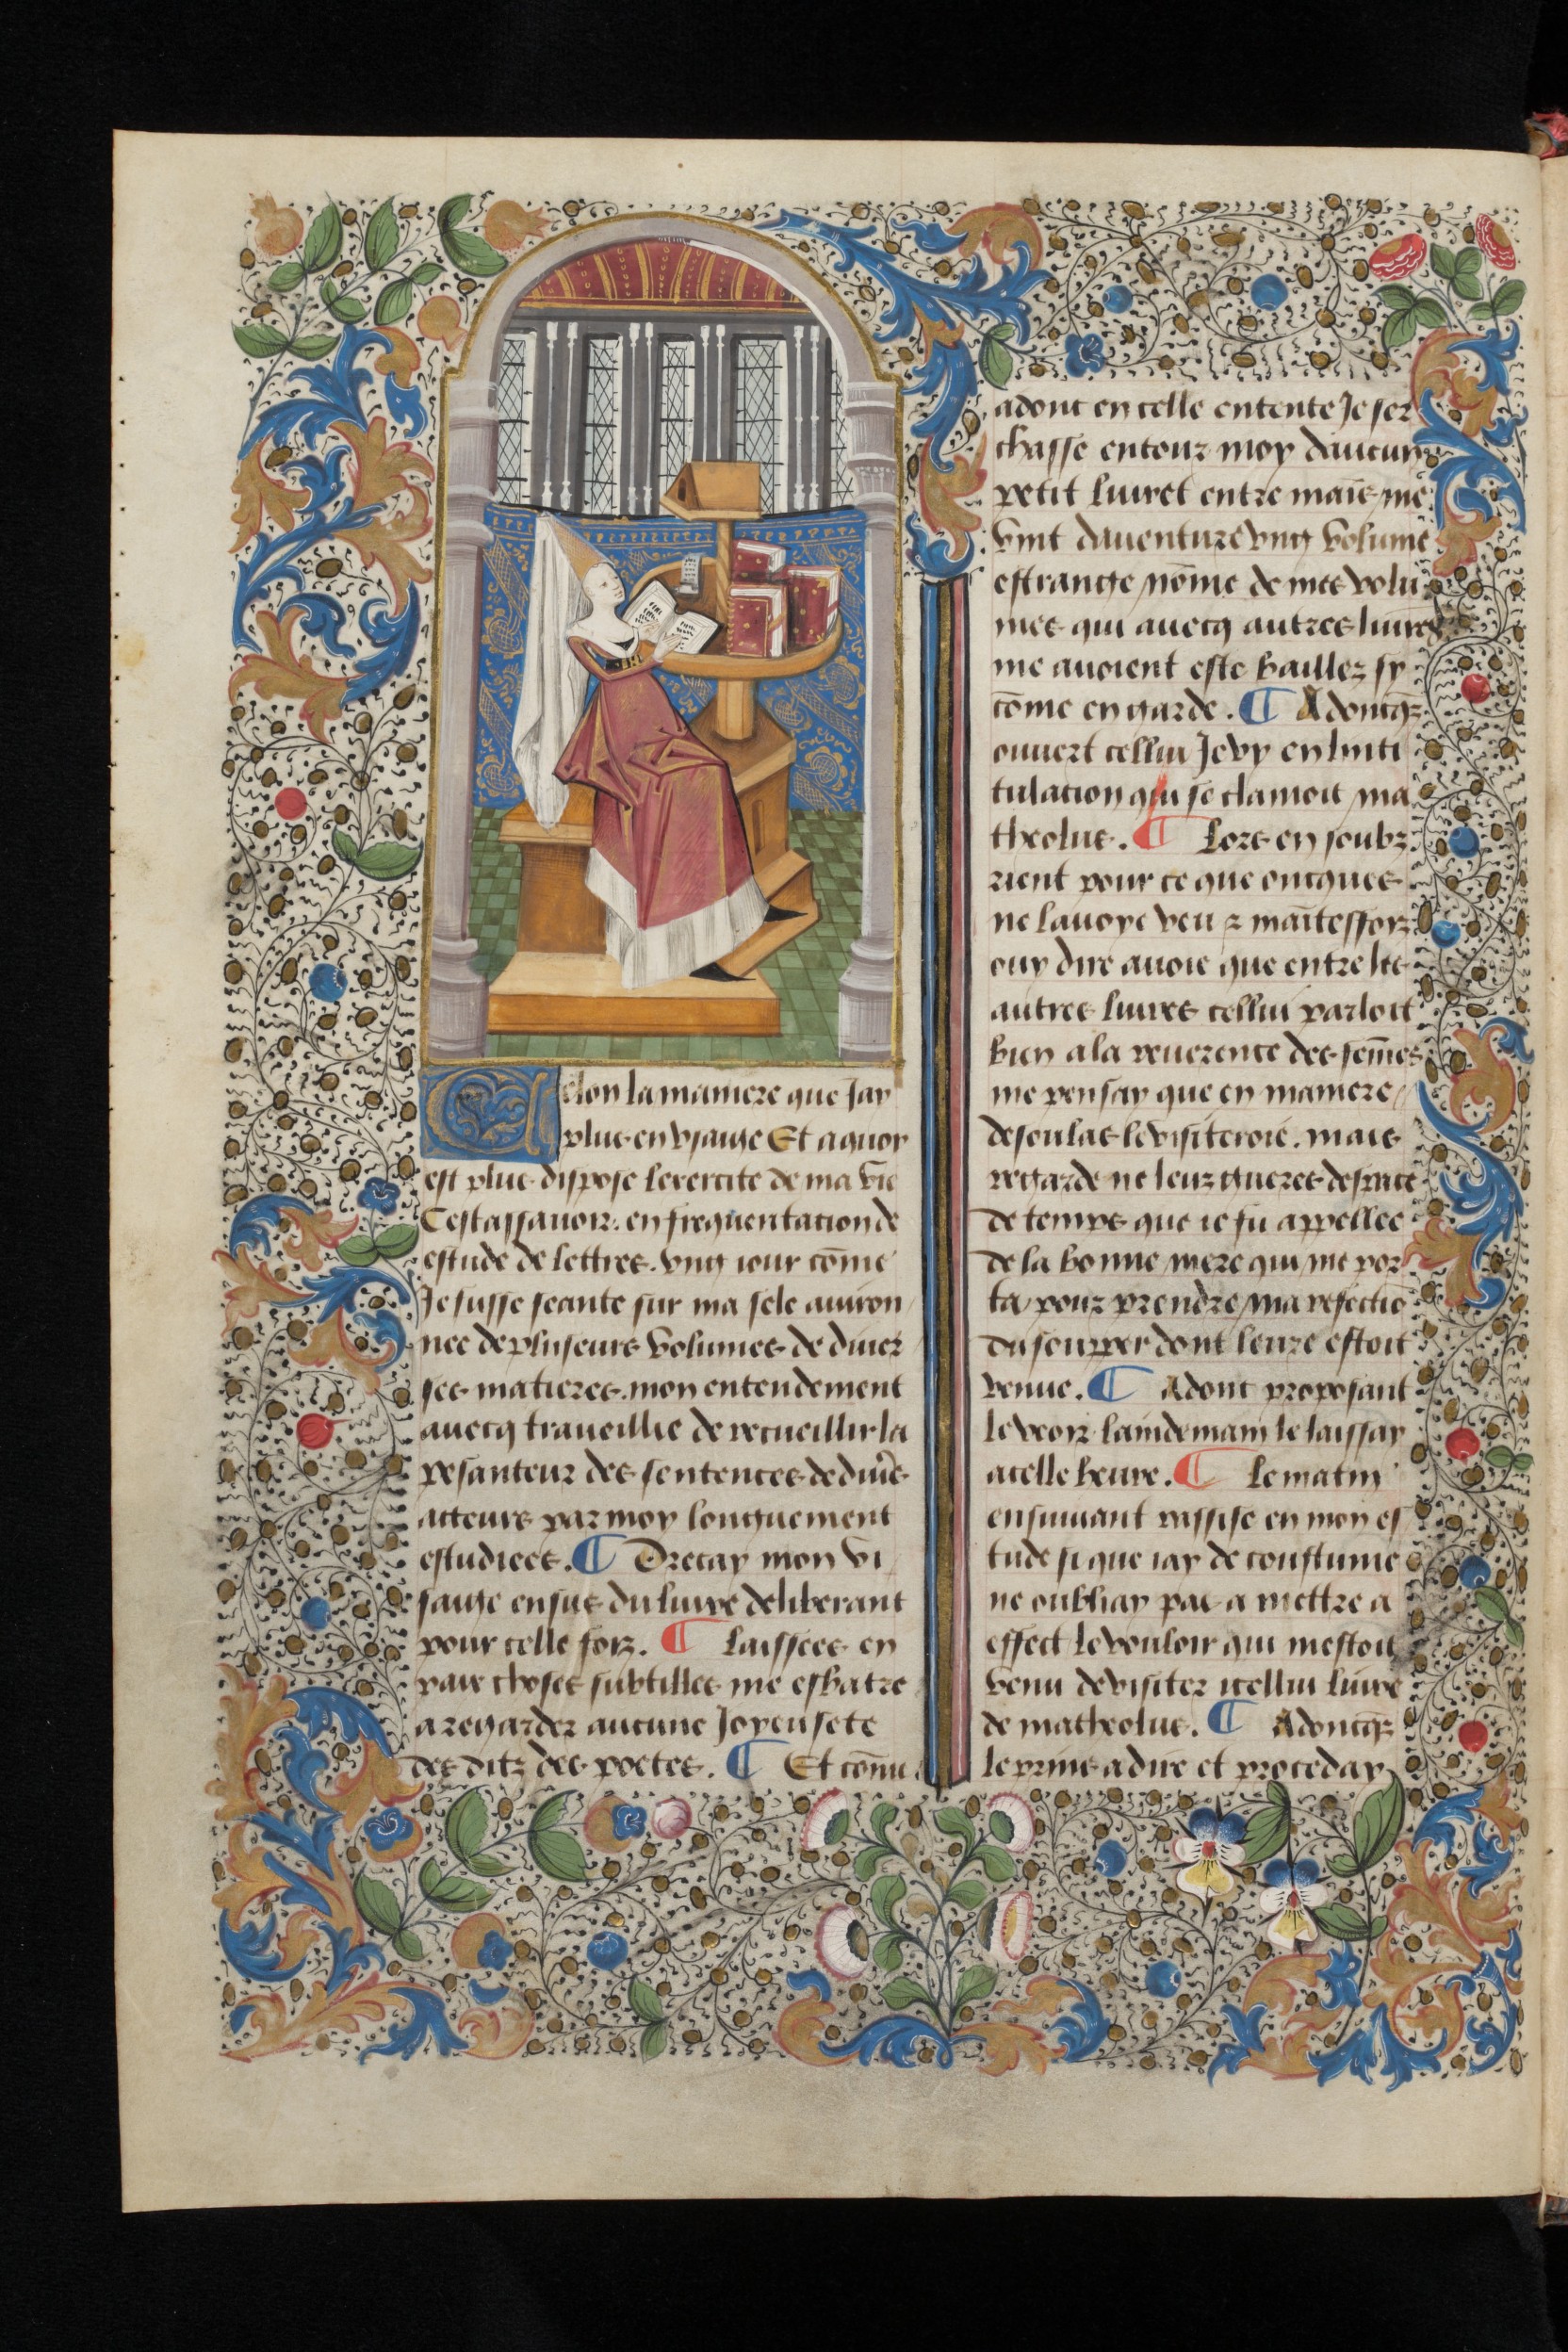 Selon la maniere que Jay
plus en vsaige Et a quoy
est plus dispose lexercite de ma vie
Cestassauoir. en frequentacion de
estude de lettres. vng iour co̅me
Je fusse seante sur ma sele auiron
nee de pluseurs volumes de diuer
ses matieres. mon entendement
auecq traueillie de recueillir la
pesanteur des sentences de diu̅s
acteurs par moy longuement
estudiees. ¶ Drecay mon vi
saige ensus du liure deliberant
pour celle foiz. ¶ Laissees en
paix choses subtilles me esbatre
a regarder aucune Joyeusete
des ditz des poetes. ¶ Et co̅me
adont en celle entente Je ser
chasse entour moy daucun
petit liuret entre mais me
vint dauenture vng volume
estrange no̅me de mes volu
mes qui auecq autres liures
me auoient este baillez sy
co̅me en garde. ¶ Adoncq̅z
ouuert cellui Je vy en linti
tulacion qui se clamoit ma
theolus. ¶ Lors en soubz
riant pour ce que oncques
ne lauoye veu ⁊ mai̅tesfoiz
ouy dire auoie que entre les
autres liures cellui parloit
bien a la reuerence des fem̅es
me pensay que en maniere
de soulas le visiteroie. mais
regarde ne leuz gueres despace
de temps que ie fu appellee
de la bonne mere qui me por
ta pour prendre ma refectio
du soupper dont leure estoit
venue. ¶ Adont proposant
le veoir laindemain le laissay
a celle heure. ¶ Le matin
ensuiuant rassise en mon es
tude si que iay de coustume
ne oubliay pas a mettre a
effect le vouloir qui mestoit
venu de visiter icellui liure
de matheolus. ¶ Adoncq̅z
le prins a dire et proceday